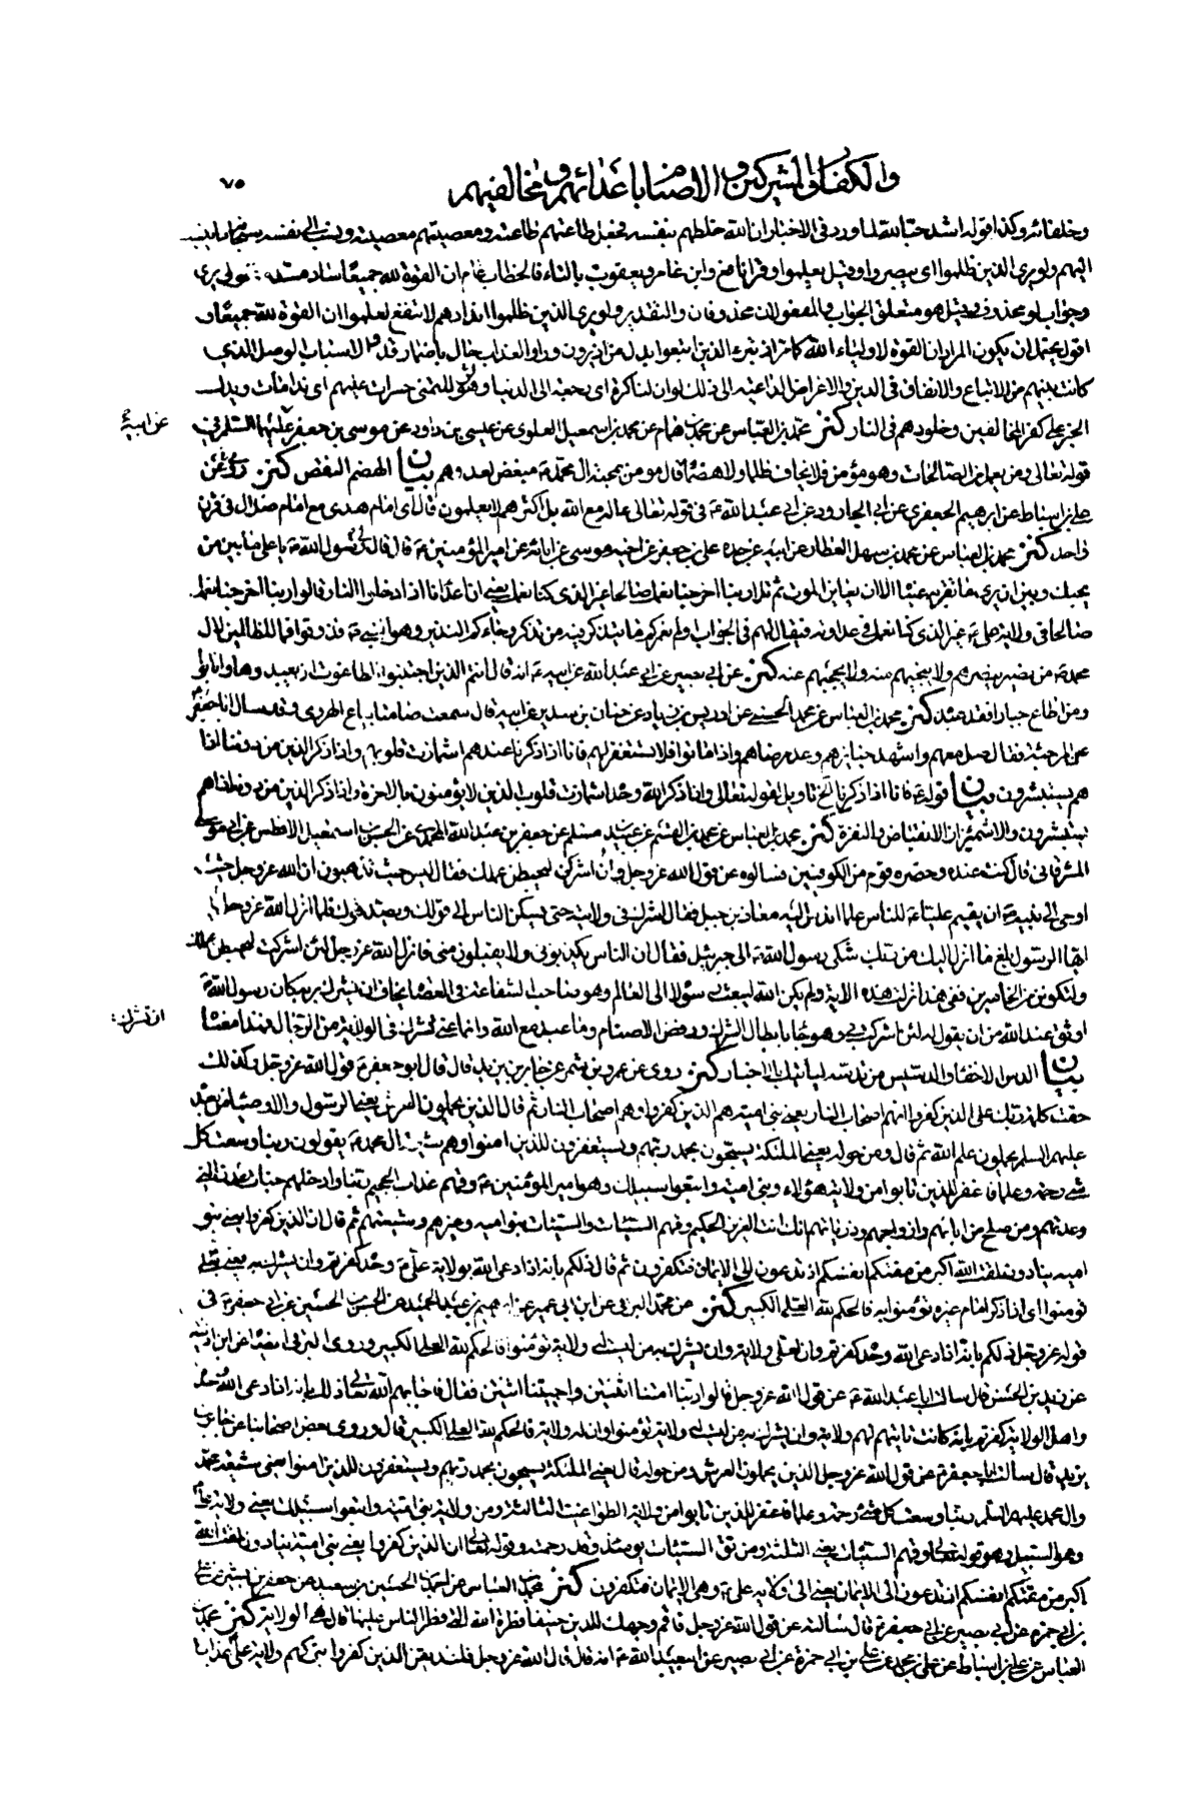 والكفار والمشركين والاصنام باعدائهم ومخالفيهم
٧٥
وخلفائه وكذا قوله اشد حبا لله لما ورد في الاخبار ان الله خلطهم بنفسه فجعل طاعتهم طاعته ومعصيتهم معصيته ونسب الى نفسه سبحانه ما ينسب
اليهم ولو يرى الذين ظلموا اى يبصروا وقيل يعلموا وقرأ نافع وابن عامر ويعقوب بالتاء فالخطاب عام ان القوة لله جميعا ساد مسد مفعولى يرى
وجواب لو محذوف وقيل هو متعلق الجواب والمفعولان محذوفان والتقدير ولو يرى الذين ظلموا اندادهم لا تنفع لعلموا ان القوة لله جميعا و
اقول يحتمل ان يكون المراد ان القوة لاولياء الله كما مر اذ تبرء الذين اتبعوا بدل من اذ يرون وراوا العذاب حال باضمار قد والاسباب الوصل الذي
كانت بينهم من الاتباع والاتفاق في الدين والاغراض الداعية الى ذلك لو ان لنا كرة اى رجعة الى الدنيا ولو للتمنى حسرات عليهم اى ندامات ويدل
الخبر على كفر المخالفين وخلودهم في النار كنز محمد بن العباس عن محمد بن همام عن محمد بن اسمعيل العلوى عن عيسى بن داود عن موسى بن جعفر عليهما السلم في
عن ابيه
قوله تعالى ومن يعمل من الصالحات وهو مؤمن فلا يخاف ظلما ولا هضما قال مومن بمحبة ال محمد ص مبغض لعدوهم بيان الهضم النقص كنز روى عن
على بن اسباط عن ابرهيم الجعفرى عن ابى الجارود عن ابى عبد الله ع في قوله تعالى ءاله مع الله بل اكثرهم لا يعلمون قال اى امام هدى مع امام ضلال في قرن
واحد كنز محمد بن العباس عن محمد بن سهل العطار عن ابيه عن جده على بن جعفر عن اخيه موسى عن ابائه عن امير المؤمنين ع قال قال لى رسول الله ص يا على ما بين من
يحبك وبين ان يرى ما تقر به عيناه الا ان يعاين الموت ثم تلا ربنا اخرجنا نعمل صالحا غير الذى كنا نعمل يعنى ان اعداءنا اذا دخلوا النار قالوا ربنا اخرجنا نعمل
صالحا في ولاية على ع غير الذى كنا نعمل في عداوته فيقال لهم في الجواب اولم نعمركم ما يتذكر فيه من تذكر وجاءكم النذير وهو النبى ص فذوقوا فما للظالمين لال
محمد ص من نصير ينصرهم ولا ينجيهم منه ولا يحجبهم عنه كنز عن ابى بصير عن ابى عبد الله عن ابيه ع انه قال انتم الذين اجتنبوا الطاغوت ان يعبدوها وانابوا
ومن اطاع جبارا فقد عبده كنز محمد بن العباس عن محمد الحسنى عن ادريس بن زياد عن حنان بن سدير عن ابيه قال سمعت صامتا بياع الهروى وقد سال ابا جعفر
عن المرجئة فقال صل معهم واشهد جنايزهم وعد مرضاهم واذا ماتوا فلا تستغفر لهم فانا اذا ذكرنا عندهم اشمازت قلوبهم واذا ذكر الذين من دوننا اذا
هم يستبشرون بيان قوله ع فانا اذا ذكرنا الخ تاويل لقوله تعالى واذا ذكر الله وحده اشمازت قلوب الذين لا يؤمنون بالاخرة واذا ذكر الذين من دونه اذا هم
يستبشرون والاشمئزاز الانقباض والنفرة كنز محمد بن العباس عن محمد بن القسم عن عبيد بن مسلم عن جعفر بن عبد الله المحمدى عن الحسن بن اسمعيل الافطس عن ابى موسى
المشرقانى قال كنت عنده وحضره قوم من الكوفيين فسالوه عن قول الله عز وجل لئن اشركت ليحبطن عملك فقال ليس حيث تذهبون ان الله عز وجل حيث
اوحى الى نبيه ص ان يقيم عليا ع للناس علما اندس اليه معاذ بن جبل فقال اشرك في ولايته حتى يسكن الناس الى قولك ويصدقوك فلما انزل الله عز وجل يا
ايها الرسول بلغ ما انزل اليك من ربك شكى رسول الله ص الى جبرئيل فقال ان الناس يكذبونى ولا يقبلون منى فانزل الله عز وجل لئن اشركت ليحبطن عملك
ولتكونن من الخاسرين ففى هذا نزلت هذه الاية ولم يكن الله ليبعث رسولا الى العالم وهو صاحب الشفاعة في العصاة يخاف ان يشرك بربه كان رسول الله ص
اوثق عند الله من ان يقول له لئن اشركت بى وهو جاء بابطال الشرك ورفض الاصنام وما عبد مع الله وانما عنى تشرك في الولاية من الرجال فهذا معناه
ان تشرك
بيان الدس الاخفاء والدسيس من تدسه ليأتيك بالاخبار كنز روى عن عمرو بن شمر عن جابر بن يزيد قال قال ابو جعفر ع قول الله عز وجل وكذلك
حقت كلمة ربك على الذين كفروا انهم اصحاب النار يعنى بنى امية هم الذين كفروا وهم اصحاب النار ثم قال الذين يحملون العرش يعنى الرسول والاوصياء من بعده
عليهم السلم يحملون علم الله ثم قال ومن حوله يعنى الملئكة يسبحون بحمد ربهم ويستغفرون للذين امنوا وهم شيعة ال محمد ع يقولون ربنا وسعت كل
شئ رحمة وعلما فاغفر للذين تابوا من ولاية هؤلاء وبنى امية واتبعوا سبيلك وهو امير المؤمنين ع وقهم عذاب الجحيم ربنا وادخلهم جنات عدن التى
وعدتهم ومن صلح من ابائهم وازواجهم وذرياتهم انك انت العزيز الحكيم وقهم السيئات والسيئات بنو امية وغيرهم وشيعتهم ثم قال ان الذين كفروا يعنى بنو
امية ينادون لمقت الله اكبر من مقتكم انفسكم اذ تدعون الى الايمان فتكفرون ثم قال ذلكم بانه اذا دعى الله بولاية على ع وحده كفرتم وان يشرك به يعنى بعلى
تؤمنوا اى اذا ذكر امام غيره تؤمنوا به فالحكم لله العلى الكبير كنز عن محمد البرقى عن ابن ابى عمير عن ابرهيم بن عبد الحميد عن الحسن بن الحسين عن ابى جعفر ع في
قوله عز وجل ذلكم بانه اذا دعى الله وحده كفرتم وان لعلى ولاية وان يشرك به من ليست له ولاية تؤمنوا فالحكم لله العلى الكبير وروى البرقى ايضا عن ابن اذينة
عن زيد بن الحسن قال سالت ابا عبد الله ع عن قول الله عز وجل قالوا ربنا امتنا اثنتين واحييتنا اثنتين فقال فاجابهم الله تعالى ذلك بانه اذا دعى الله وحده
واهل الولاية كفرتم بانه كانت لهم ولاية وان يشرك به من ليست له ولاية تؤمنوا بان له ولاية فالحكم لله العلى الكبير قال وروى بعض اصحابنا عن جابر بن
يزيد قال سالت ابا جعفر ع عن قول الله عز وجل الذين يحملون العرش ومن حوله قال يعنى الملئكة يسبحون بحمد ربهم ويستغفرون للذين امنوا يعنى شيعة محمد
وال محمد عليهم السلم ربنا وسعت كل شئ رحمة وعلما فاغفر للذين تابوا من ولاية الطواغيت الثلثة ومن ولاية بنى امية واتبعوا سبيلك يعنى ولاية على
وهو السبيل وهو قوله تعالى وقهم السيئات يعنى الثلثة ومن تق السيئات يومئذ فقد رحمته وقوله تعالى ان الذين كفروا يعنى بنى امية ينادون لمقت الله
اكبر من مقتكم انفسكم اذ تدعون الى الايمان يعنى الى ولاية على ع وهى الايمان فتكفرون كنز محمد بن العباس عن احمد بن الحسين بن سعيد عن جعفر بن بشير عن على
بن ابى حمزة عن ابى بصير عن ابى جعفر ع قال سالته عن قول الله عز وجل فاقم وجهك للدين حنيفا فطرة الله التى فطر الناس عليها قال هى الولاية كنز محمد بن
العباس عن على بن اسباط عن على بن محمد عن على بن ابى حمزة عن ابى بصير عن ابى عبد الله ع انه قال قال الله عز وجل فلنذيقن الذين كفروا بتركهم ولاية على عذابا